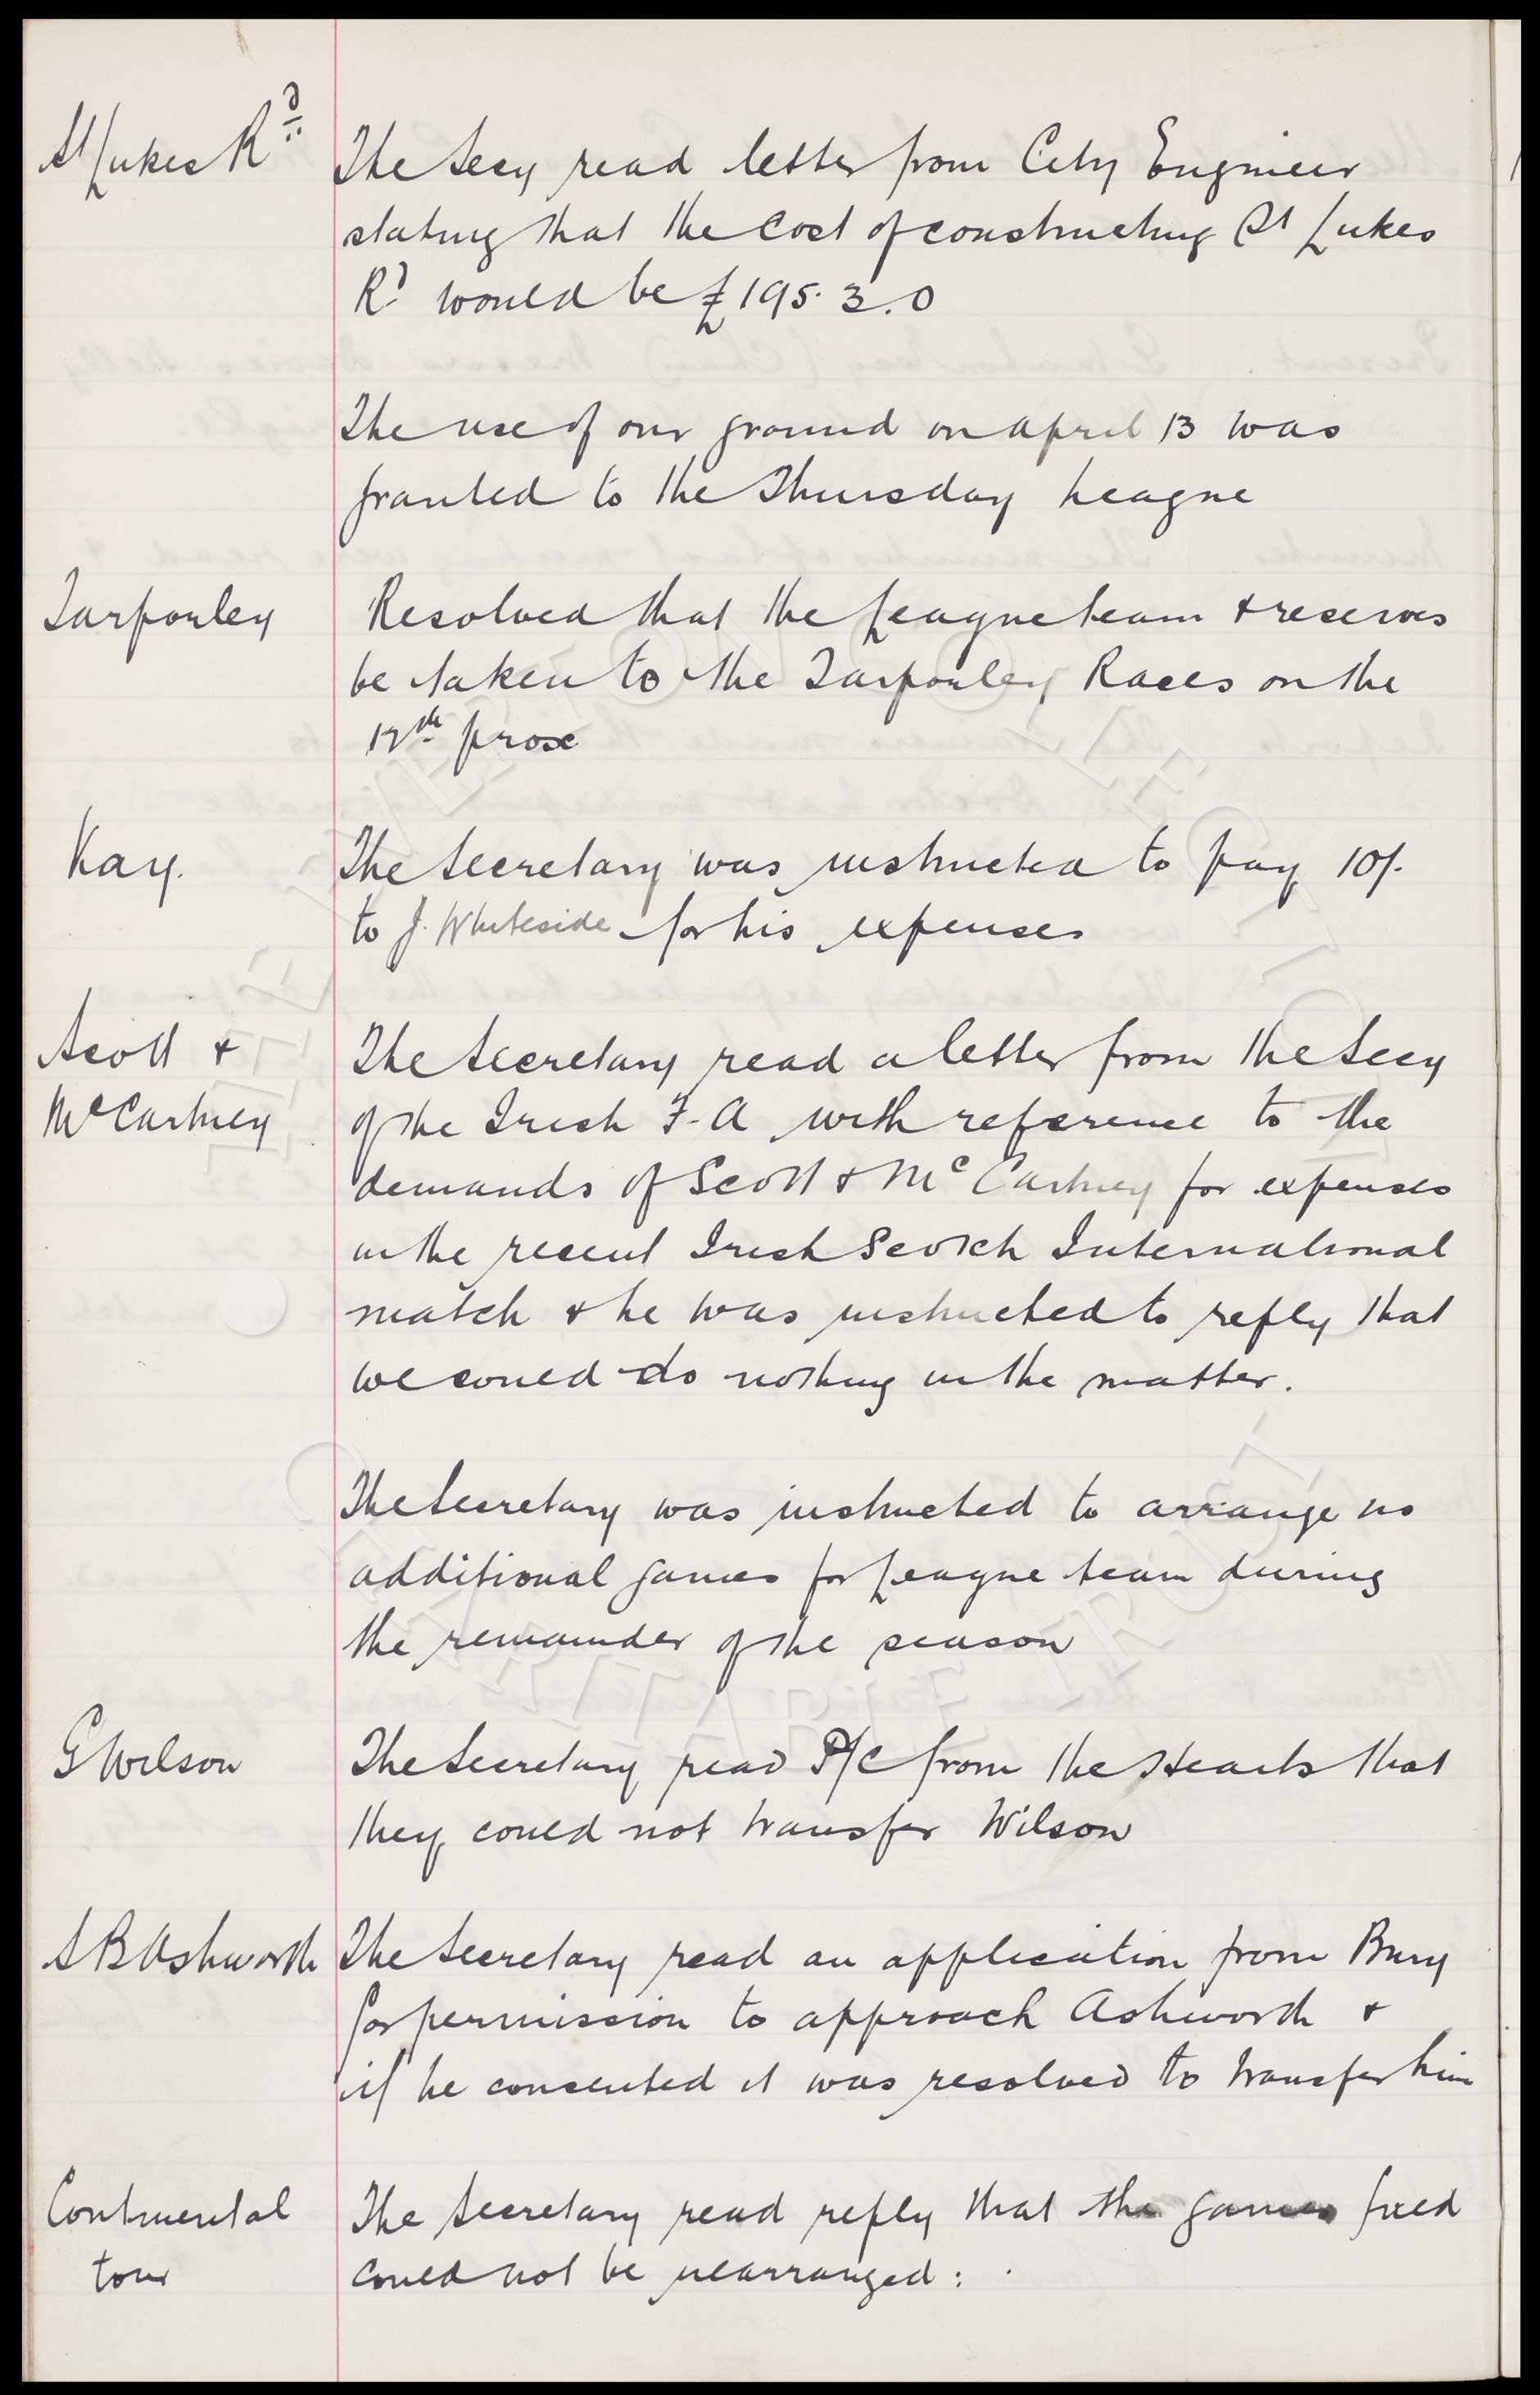 St Lukes Rd
The Secy read letter from City Engineer
stating that the cost of constructing St Lukes
Rd would be £195.3.0
The use of our ground on April 13 was
granted to the Thursday League
Tarporley
Resolved that the League team & reserves
be taken to the Tarporley Races on the
12th prox
Kay.
The Secretary was instructed to pay 10/-
to J. Whiteside for his expenses
Scott &
McCartney
The Secretary read a letter from the Secy
of the Irish F.A with reference to the
demands of Scott & McCartney for expenses
in the recent Irish Scotch International
match & he was instructed to reply that
we could do nothing in the matter.
The Secretary was instructed to arrange no
additional games for League team during
the remainder of the season
G Wilson
The Secretary read P/C from the Hearts that
they could not transfer Wilson
S B Ashworth
The Secretary read an application from Bury
for permission to approach Ashworth &
if he consented it was resolved to transfer him
Continental
tour
The Secretary read reply that the games fixed
could not be rearranged: